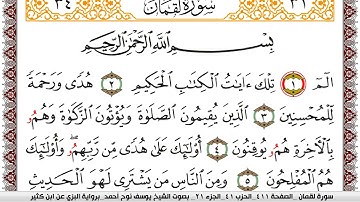 ٣٤ سُورَةُ لُقْمَانَ ٣١
بِسْمِ اللَّهِ الرَّحْمَٰنِ الرَّحِيمِ
الٓمٓ ١ تِلْكَ ءَايَٰتُ الْكِتَٰبِ الْحَكِيمِ ٢ هُدًى وَرَحْمَةً
لِّلْمُحْسِنِينَ ٣ الَّذِينَ يُقِيمُونَ الصَّلَوٰةَ وَيُؤْتُونَ الزَّكَوٰةَ وَهُمُۥ
بِالْءَاخِرَةِ هُمُۥ يُوقِنُونَ ٤ أُوْلَٰٓئِكَ عَلَىٰ هُدًى مِّن رَّبِّهِمُۥ وَأُوْلَٰٓئِكَ
هُمُ الْمُفْلِحُونَ ٥ وَمِنَ النَّاسِ مَن يَشْتَرِى لَهْوَ الْحَدِيثِ
سورة لقمان _ الصفحة ٤١١ _ الحزب ٤١ _ الجزء ٢١ _ بصوت الشيخ يوسف نوح أحمد _ برواية البزي عن ابن كثير